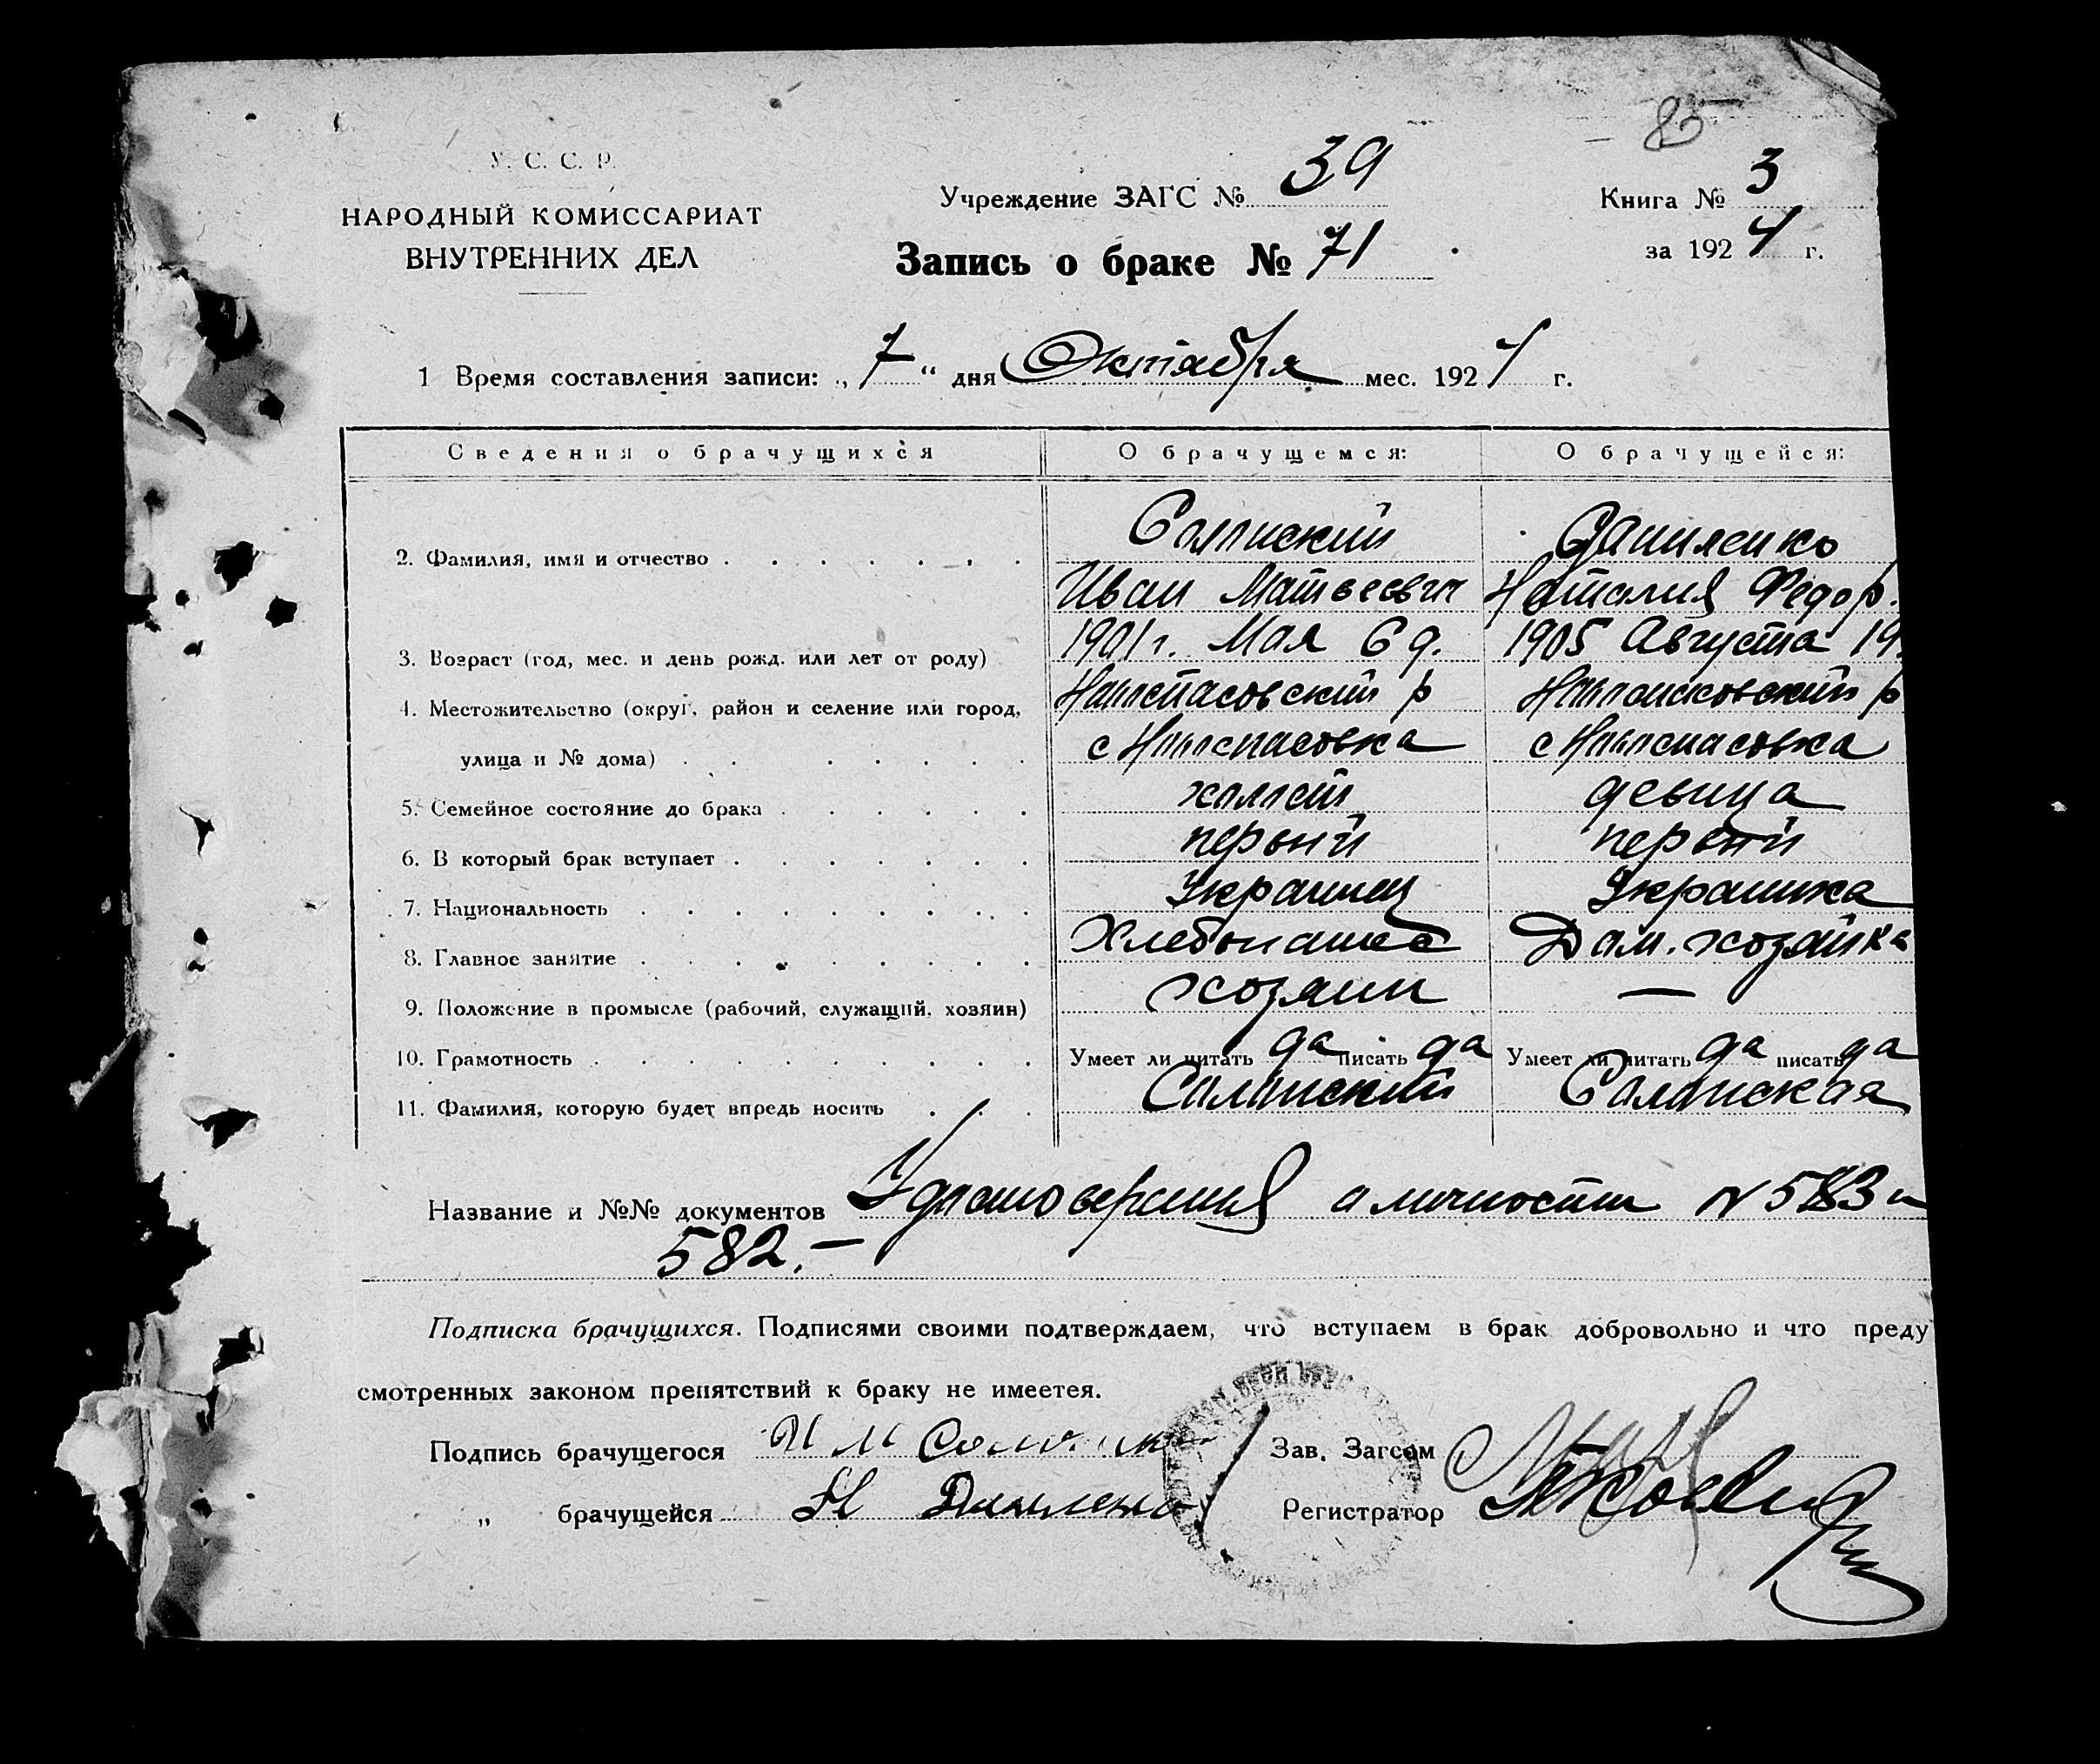 85
У. С. С. Р.
НАРОДНЫЙ КОМИССАРИАТ
ВНУТРЕННИХ ДЕЛ
Учреждение ЗАГС № 39
Книга № 3
Запись о браке № 71
за 1924 г.
1 Время составления записи: „7“ дня Октября мес. 1924 г.
Сведения о брачущихся О брачущемся: О брачущейся:
2. Фамилия, имя и отчество Даниленко
Иван Матвеевич Наталия Федор.
3. Возраст (год, мес. и день рожд. или лет от роду) 1901 г. Мая 6 д. 1905 Августа 19
4. Местожительство (округ, район и селение или город, р р
улица и № дома) с Новоспасовка с Новоспасовка
5. Семейное состояние до брака холост девица
6. В который брак вступает первый первый
7. Национальность Украинец Украинка
8. Главное занятие Хлебопашес Дом. хозяйка
9. Положение в промысле (рабочий, служащий, хозяин) хозяин —
10. Грамотность Умеет ли читать да писать да Умеет ли читать да писать да
11. Фамилия, которую будет впредь носить Солонский Солонская
Название и №№ документов Удостоверения о личности № 583 и
582. —
Подписка брачущихся. Подписями своими подтверждаем, что вступаем в брак добровольно и что преду
смотренных законом препятствий к браку не имеетея.
Подпись брачущегося И М Зав. Загсом
„ брачущейся Н Регистратор